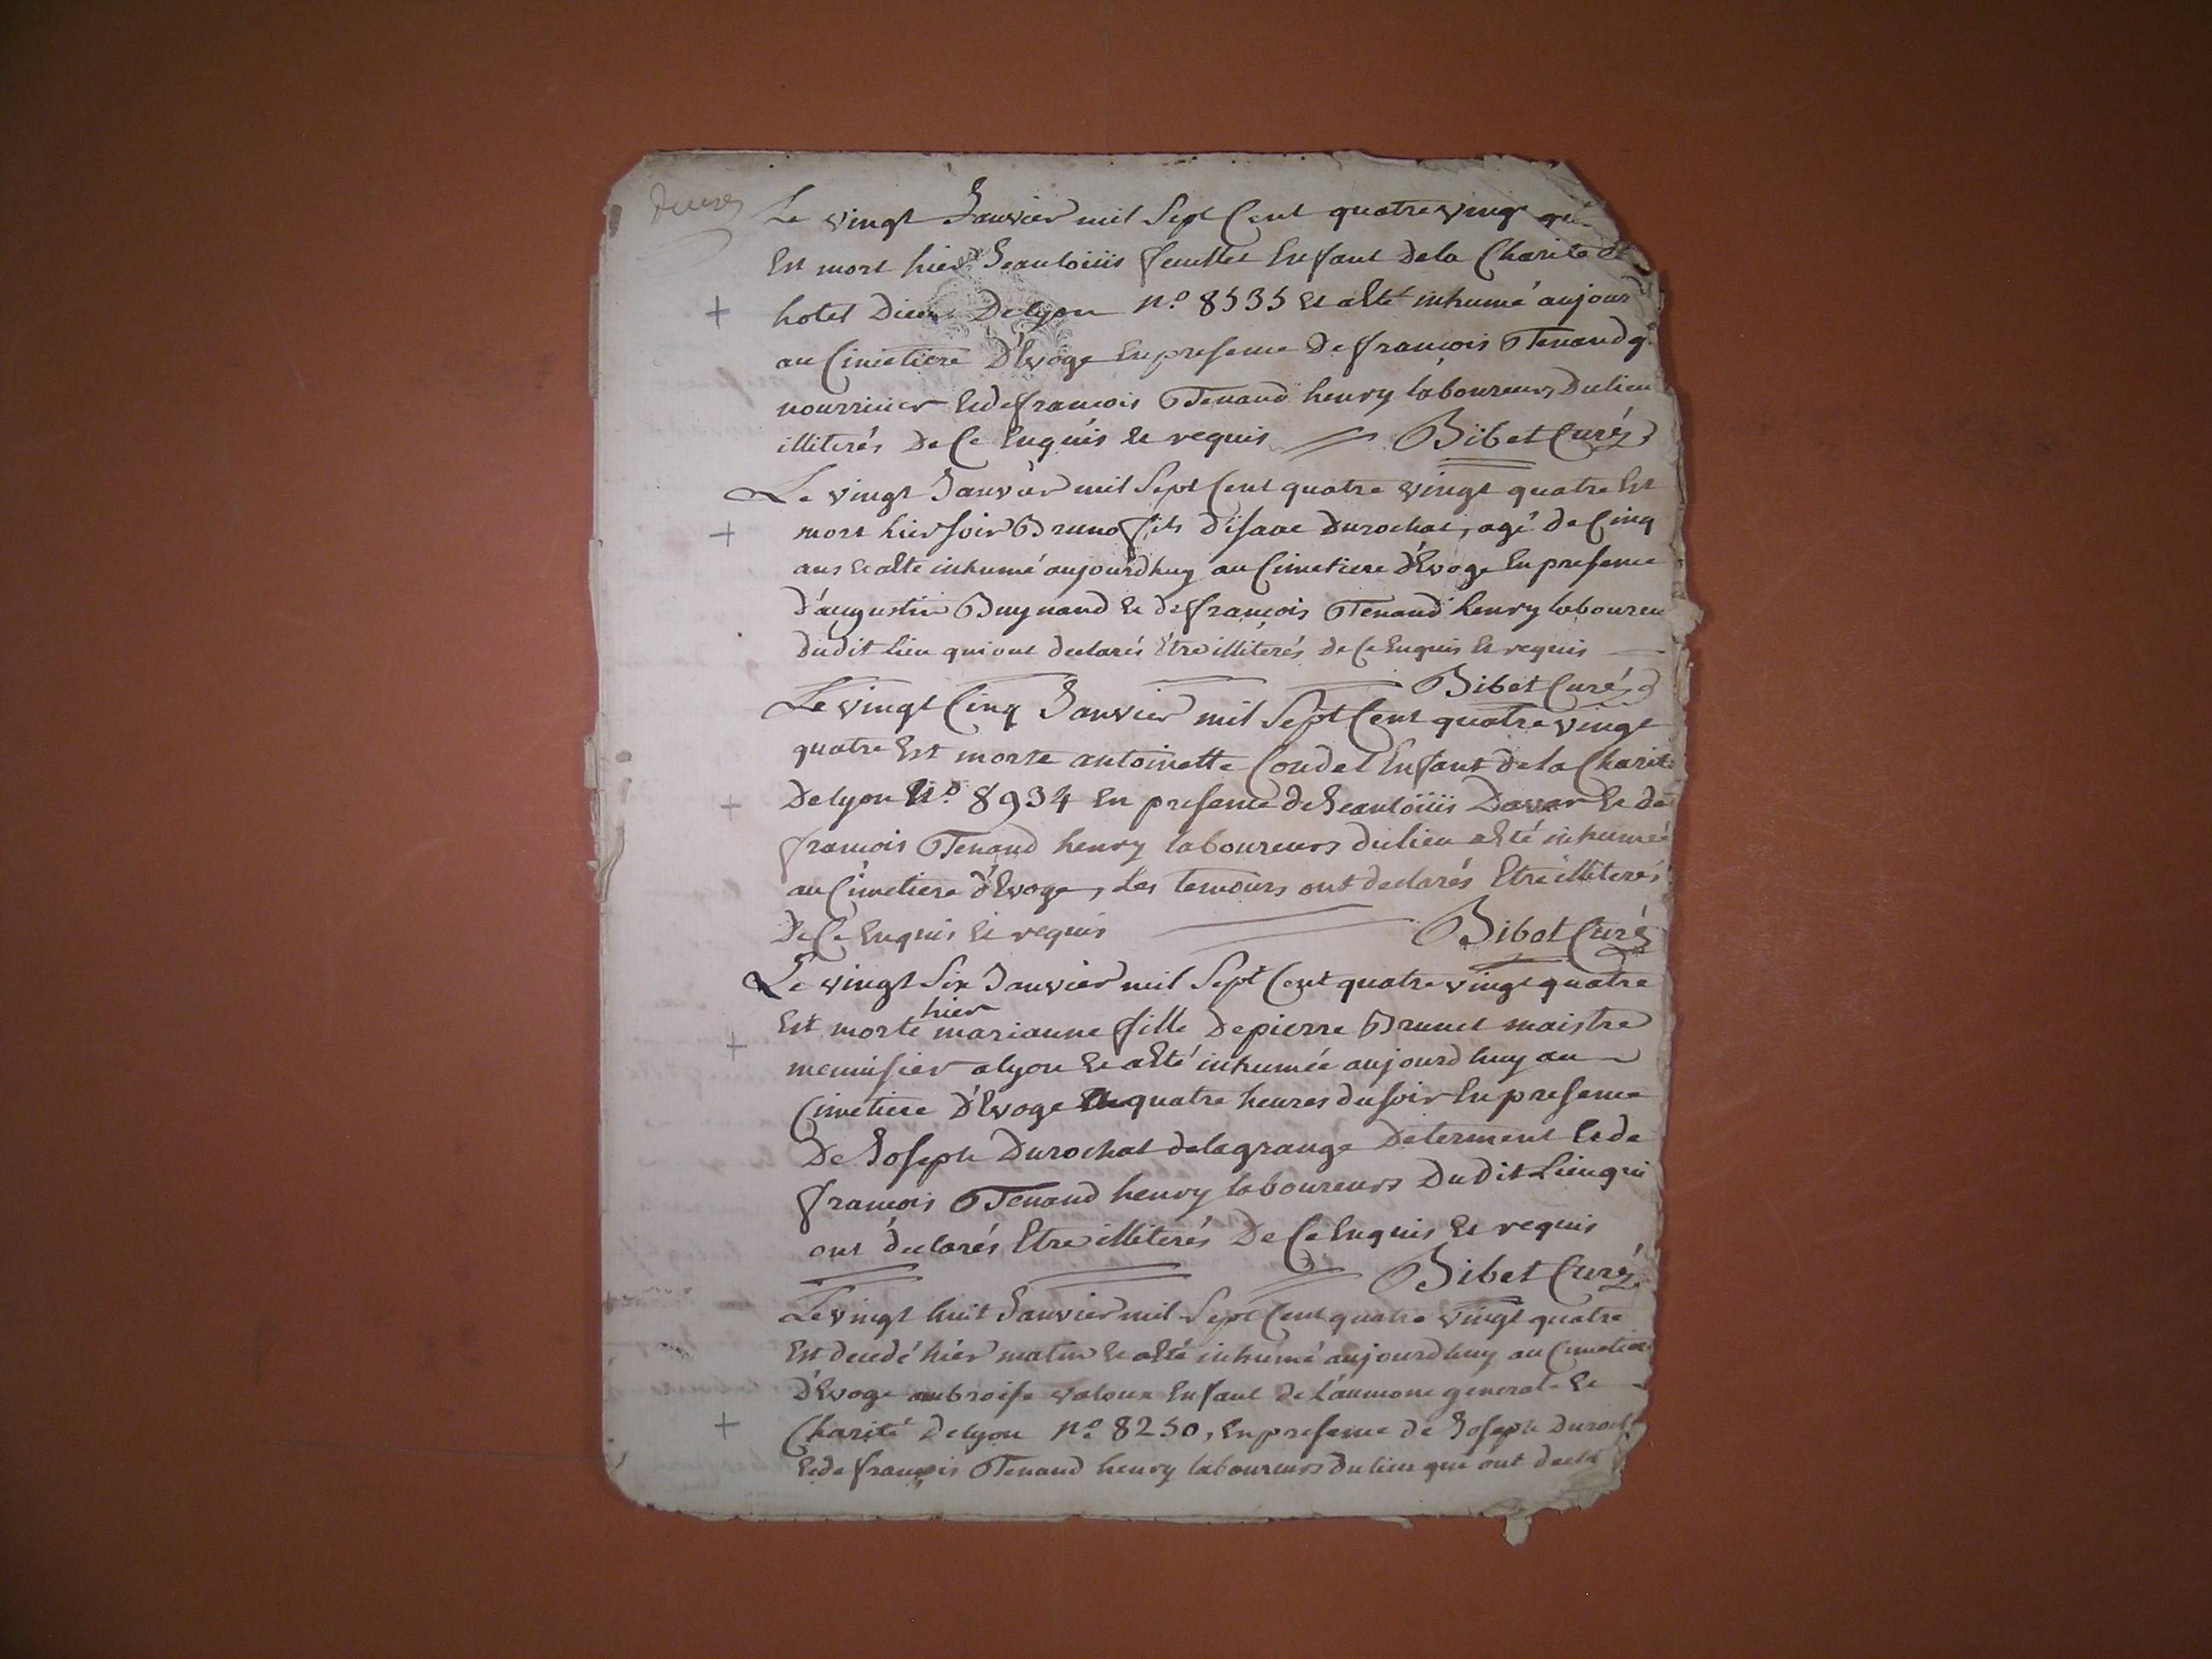 Le vingt Janvier mil Sept Cent quatre vingt
Est mort hier Jean loüis feuillet Enfant de la Charité de
hotel Dieu De lyon n.o 8535 Et a Eté inhumé aujour
au Cimetiere D'Evoge En presence De francois Tenand
nourricier Et de francois Tenand henry laboureurs Du lieu
illiterés De Ce Enquis Et requis Bibet Curé
Le vingt Janvier mil Sept Cent quatre vingt quatre Est
mort hier soir Bruno fils D'isaac Durochat, agé de Cinq
ans Et a Eté inhumé aujourdhuy au Cimetiere d'Evoge En presence
D'augustin Buynand Et de francois Tenand henry laboureu
Dudit Lieu qui ont declarés Etre illiterés De Ce Enquis Et requis
Bibet Curé
Le vingt Cinq Janvier mil Sept Cent quatre vingt
quatre Est morte antoinette Coudel Enfant de la Charité
De lyon N.o 8934 En presence de Jean loüis Et de
francois Tenand henry laboureurs du lieu a Eté inhumée
au Cimetiere d'Evoge, Les temoins ont declarés Etre illiterés
De Ce Enquis Et requis Bibet Curé
Le vingt Six Janvier mil Sept Cent quatre vingt quatre
hier
Est morte marianne fille De pierre Brunet maistre
menuisier a lyon Et a Eté inhumée aujourdhuy au
Cimetiere D'Evoge quatre heures du soir En presence
De Joseph Durochat de la grange De terment Et de
francois Tenand henry laboureurs Du Dit Lieu qui
ont declarés Etre illiterés De Ce Enquis Et requis
Bibet Curé
Le vingt huit Janvier mil Sept Cent quatre vingt quatre
Est decedé hier matin Et a Eté inhumé aujourdhuy au Cimetiere
D'Evoge ambroise valoux Enfant de L'aumone generale Et
Charité De lyon n.o 8250, En presence de Joseph Duroch
Et de francois Tenand henry laboureurs Du lieu qui ont decla